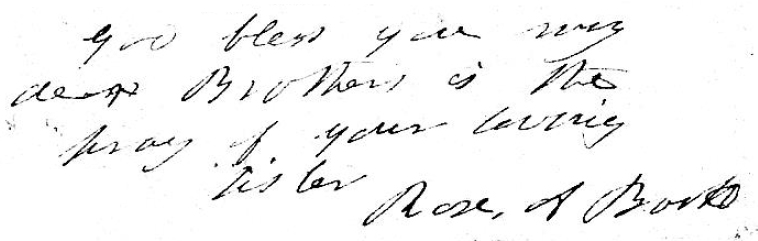 God bless you my
dear Brothers is the
pray of your loving
sister
Rose, A